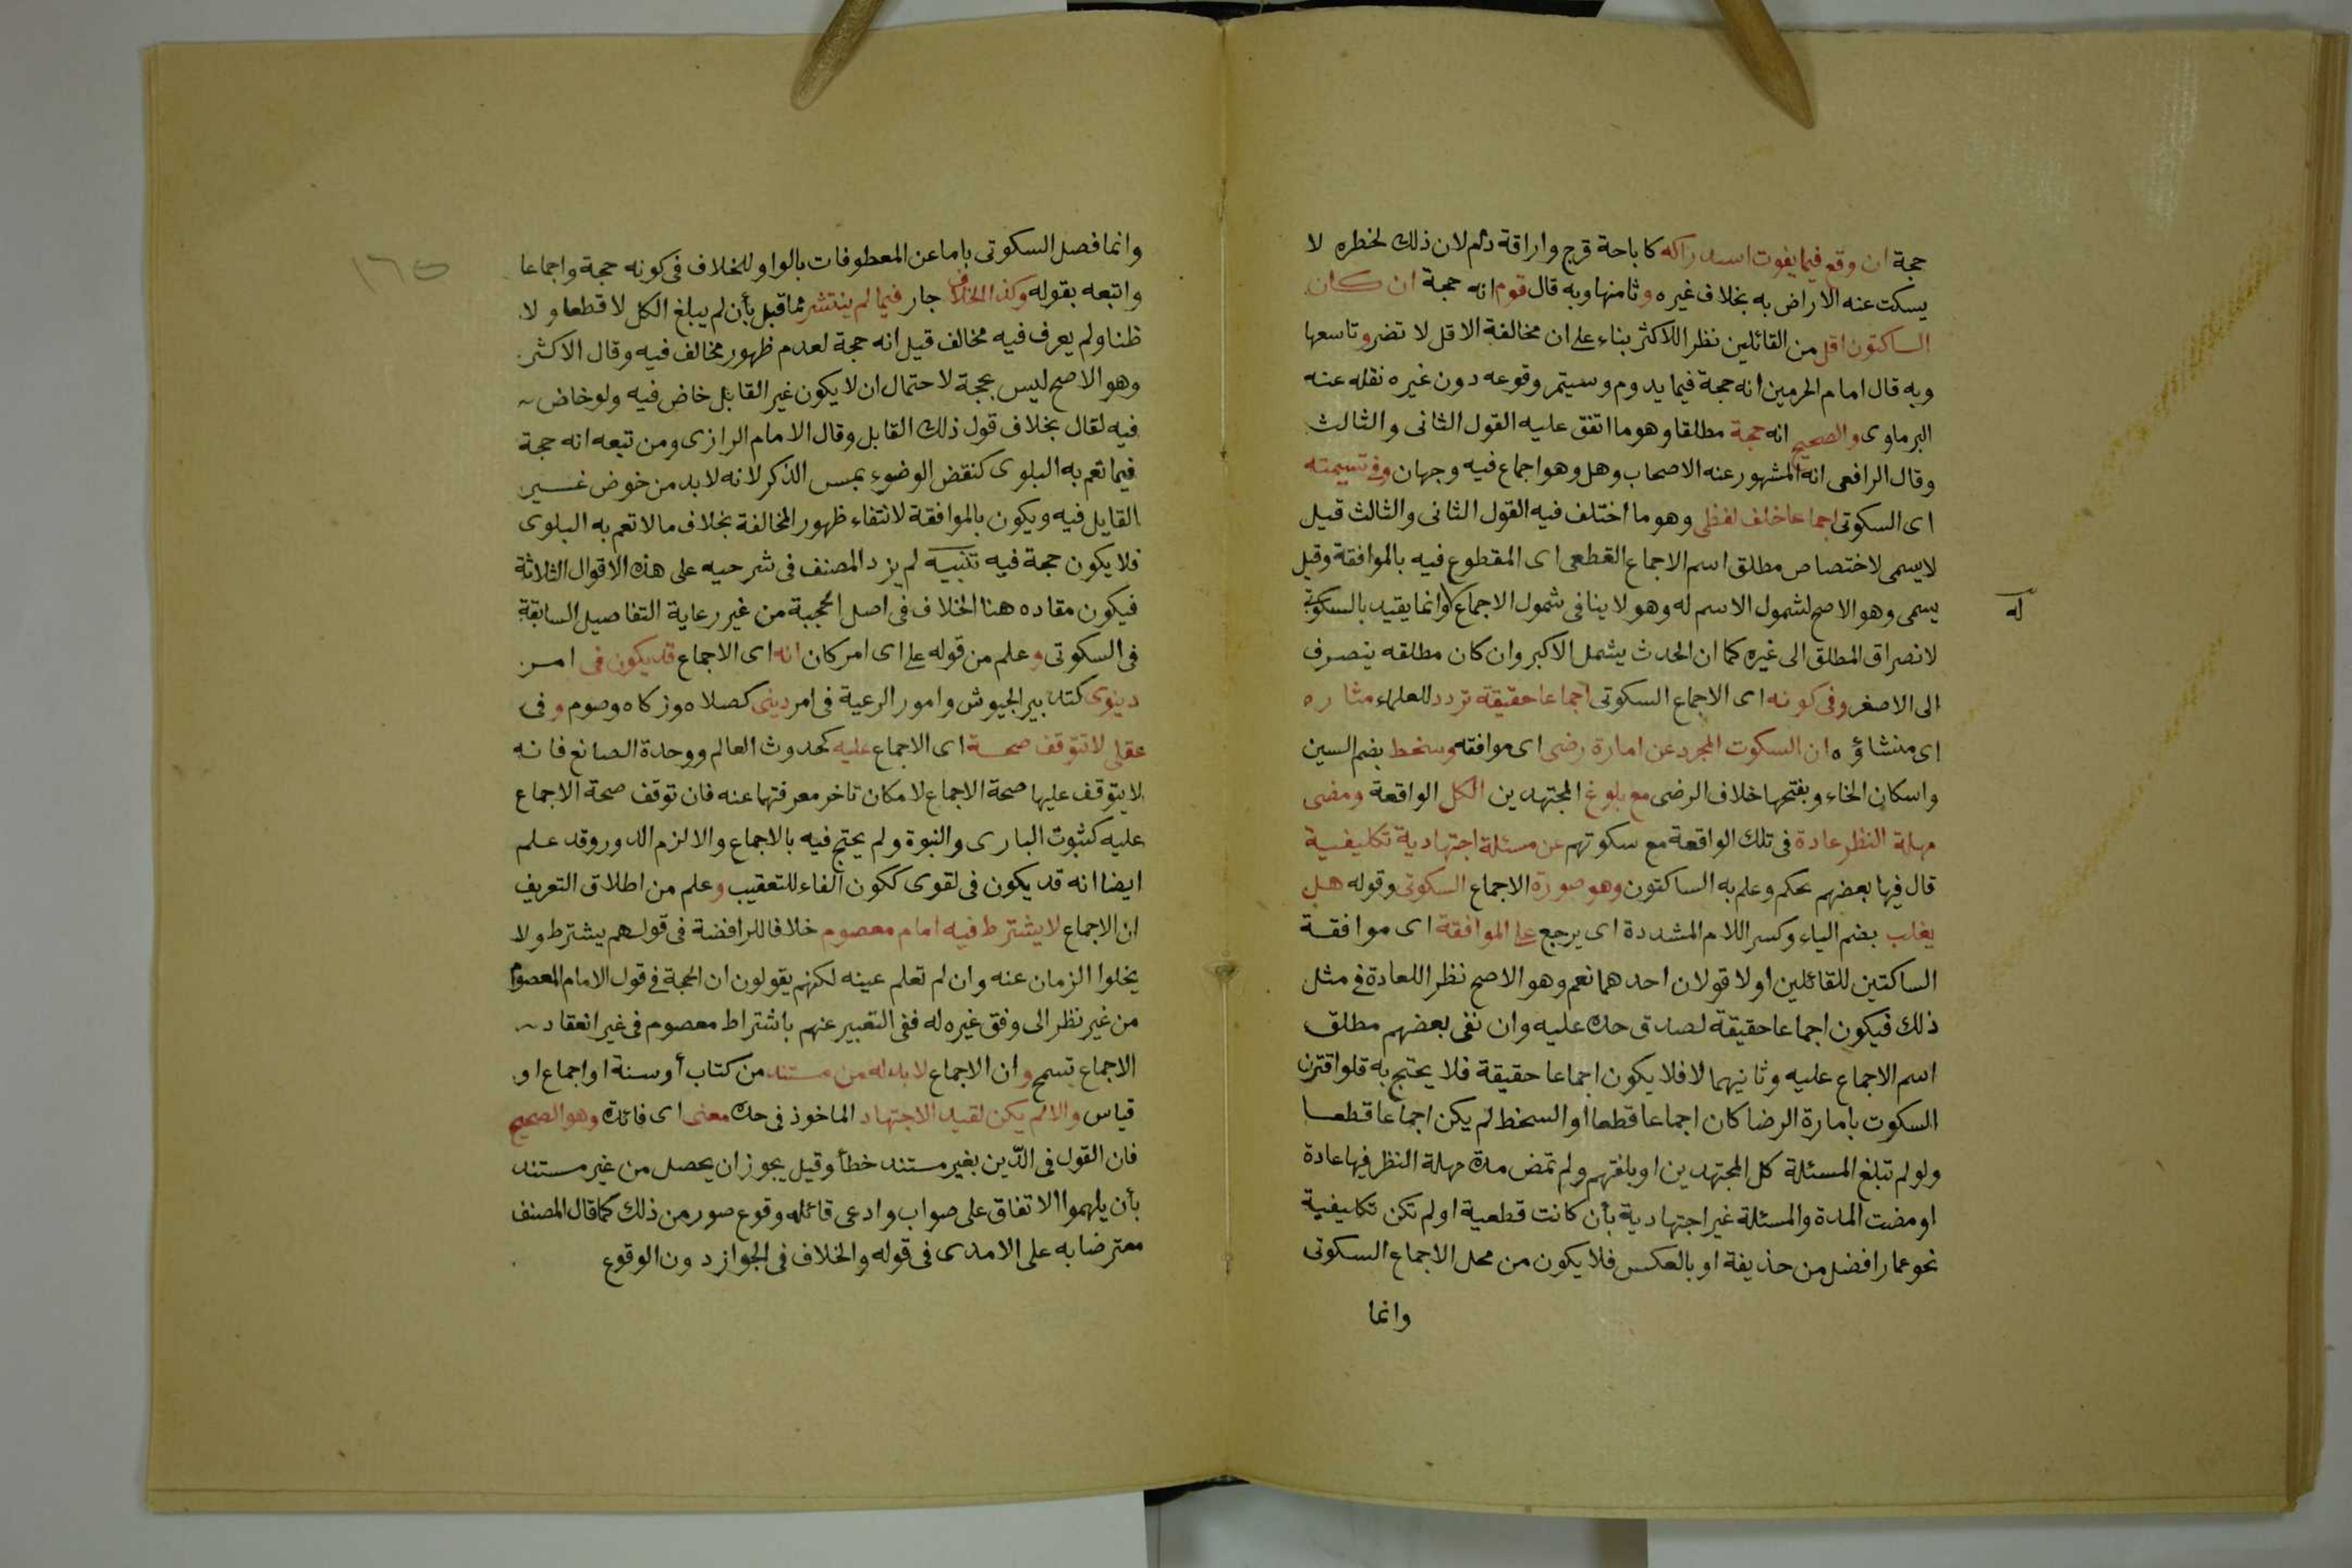 حجة ان وقع فيما يفوت استدراكه كاباحة فرج واراقة دم لان ذلك لخطره لا
يسكت عنه الا راض به بخلاف غيره وثامنها وبه قال قوم انه حجة ان كان
الساكتون اقل من القائلين نظرا للاكثر بناء على ان مخالفة الاقل لا تضر وتاسعها
وبه قال امام الحرمين انه حجة فيما يدوم وسيتمر وقوعه دون غيره نقله عنه
البرماوى والصحيح انه حجة مطلقا وهو ما اتفق عليه القول الثانى والثالث
وقال الرافعى انه المشهور عنه الاصحاب وهل وهو اجماع فيه وجهان وفى تسيمته
اى السكوتى اجماعا خلف لفظى وهو ما اختلف فيه القول الثانى والثالث قيل
لا يسمى لاختصاص مطلق اسم الاجماع القطعى اى المقطوع فيه بالموافقة وقيل
يسمى وهو الاصح لشمول الاسم له وهو لا ينافى شمول الاجماع وانما يقيد بالسكوتى
له
لانصراق المطلق الى غيره كما ان الحدث يشمل الاكبر وان كان مطلقه ينصرف
الى الاصغر وفى كونه اى الاجماع السكوتى اجماعا حقيقة تردد للعلماء مثاره
اى منشاؤه ان السكوت المجرد عن امارة رضى اى موافقه وسخط بضم السين
واسكان الخاء وبفتحها خلاف الرضى مع بلوغ المجتهدين الكل الواقعة ومضى
مهلة النظر عادة فى تلك الواقعة مع سكوتهم عن مسئلة اجتهادية تكليفية
قال فيها بعضهم بحكم وعلم به الساكتون وهو صورة الاجماع السكوتى وقوله هل
يغلب بضم الياء وكسر اللام المشددة اى يرجع على الموافقة اى موافقة
الساكتين للقائلين اولا قولان احدهما نعم وهو الاصح نظرا للعادة فى مثل
ذلك فيكون اجماعا حقيقة لصدق حده عليه وان نفى بعضهم مطلق
اسم الاجماع عليه وثانيهما لا فلا يكون اجماعا حقيقة فلا يحتج به فلو اقترن
السكوت بامارة الرضا كان اجماعا قطعا او السخط لم يكن اجماعا قطعا
ولو لم تبلغ المسئلة كل المجتهدين او بلغتهم ولم تمض مدة مهلة النظر فيها عادة
او مضت المدة والمسئلة غير اجتهادية بأن كانت قطعية او لم تكن تكليفية
نحو عمار افضل من حذيفة او بالعكس فلا يكون من محل الاجماع السكوتى
وانما
١٦٥
وانما فصل السكوتى باما عن المعطوفات بالواو للخلاف فى كونه حجة واجماعا
واتبعه بقوله وكذا الخلاف جار فيما لم ينتشر مما قيل بأن لم يبلغ الكل لا قطعا ولا
ظنا ولم يعرف فيه مخالف قيل انه حجة لعدم ظهور مخالف فيه وقال الاكثر
وهو الاصح ليس بحجة لاحتمال ان لا يكون غير القايل خاض فيه ولو خاض
فيه لقال بخلاف قول ذلك القايل وقال الامام الرازى ومن تبعه انه حجة
فيما تعم به البلوى كنقض الوضوء بمس الذكر لانه لا بد من خوض غير
القايل فيه ويكون بالموافقة لانتفاء ظهور المخالفة بخلاف ما لا تعم به البلوى
فلا يكون حجة فيه تنبيه لم يزد المصنف فى شرحيه على هذه الاقوال الثلاثة
فيكون مفاده هنا الخلاف فى اصل الحجية من غير رعاية التفاصيل السابقة
فى السكوتى وعلم من قوله على اى امر كان انه اى الاجماع قد يكون فى امر
دينوى كتدبير الجيوش وامور الرعية فى امر دينى كصلاه وزكاه وصوم وفى
عقلى لا تتوقف صحة اى الاجماع عليه كحدوث العالم ووحدة الصانع فانه
لا يتوقف عليها صحة الاجماع لا مكان تاخر معرفتها عنه فان توقف صحة الاجماع
عليه كثبوت البارى والنبوة ولم يحتج فيه بالاجماع والا لزم الدور وقد علم
ايضا انه قد يكون فى لغوى ككون الفاء للتعقيب وعلم من اطلاق التعريف
ان الاجماع لا يشترط فيه امام معصوم خلافا للرافضة فى قولهم يشترط ولا
يخلوا الزمان عنه وان لم تعلم عينه لكنهم يقولون ان الحجة فى قول الامام المعصوم
من غير نظر الى وفق غيره له ففى التعبير عنهم باشتراط معصوم فى غير انعقاد
الاجماع تسمح وان الاجماع لا بد له من مستند من كتاب أو سنة او اجماع او
قياس والا لم يكن لقيد الاجتهاد الماخوذ فى حده معنى اى فائدة وهو الصحيح
فان القول فى الدّين بغير مستند خطأ وقيل يجوز ان يحصل من غير مستند
بأن يلهموا الاتفاق على صواب وادعى قائله وقوع صور من ذلك كما قال المصنف
معترضا به على الامدى فى قوله والخلاف فى الجواز دون الوقوع